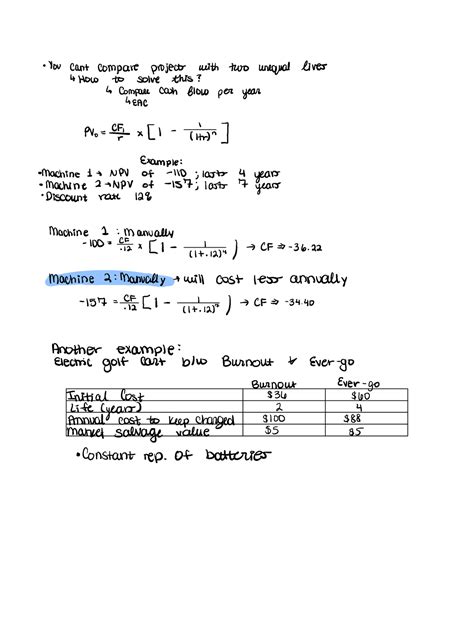 • You cant compare projects with two unequal lives
↳ How to solve this?
↳ Compare cash flow per year
↳ EAC
PV₀ = CF₁/r × [1 - 1/(1+r)ⁿ]
Example:
• Machine 1 → NPV of -110; lasts 4 years
• Machine 2 → NPV of -157; lasts 7 years
• Discount rate 12%
Machine 1: Manually
-100 = CF/.12 × [1 - 1/(1+.12)⁴] → CF ⇒ -36.22
Machine 2: Manually → will cost less annually
-157 = CF/.12 [1 - 1/(1+.12)⁷] → CF ⇒ -34.40
Another example:
Electric golf cart b/w Burnout & Ever-go
Burnout Ever-go
Initial Cost $36 $60
Life (years) 2 4
Annual cost to keep charged $100 $88
Market salvage value $5 $5
• Constant rep. of batteries